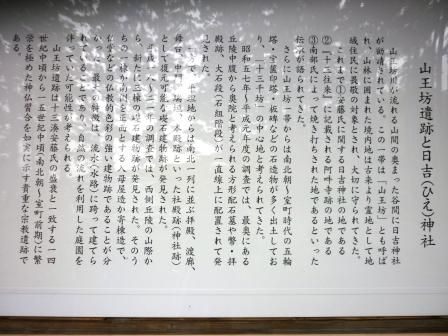 山王坊遺跡と日吉(ひえ)神社
山王坊川が流れる山間の奥まった谷間に日吉神社
が勧請されている。この一帯は「山王坊」とも呼ば
れ、山林に囲まれた境内地は古来より霊地として地
域住民に畏敬の対象とされ、大切に守られてきた。
これまで①安藤氏に関する日吉神社の地である
②「十三往来」に記載される阿吽寺跡の地である
③南部氏によって焼き打ちされた地であるといった
伝承が語られてきた。
さらに山王坊一帯からは南北朝～室町時代の五輪
塔・宝篋印塔・板碑などの石造物が多く出土してお
り、「十三千坊」の中心地と考えられてきた。
昭和五七年～平成元年度の調査では、最奥にある
丘陵中腹から奥院と考えられる方形配石墓や幣・拝
殿跡、大石段(石組階段)が一直線上に配置されて発
見された。
一方で、平坦地からは南北一列に並ぶ拝殿、渡廊、
として復元可能な礎石建物跡が発見された。
平成一八～二一年の調査では、西側丘陵の山際か
ら、新たに三棟の礎石建物跡が発見された。そのう
仏堂などの仏教的色彩の強い建物跡であることが分
伴っていた可能性が考えられる。
山王坊遺跡は十三湊安藤氏の盛衰と一致する一四
世紀中頃から一五世紀中頃(南北朝～室町前期)に繁
栄を極めた神仏習合を如実に示す貴重な宗教遺跡で
ある。